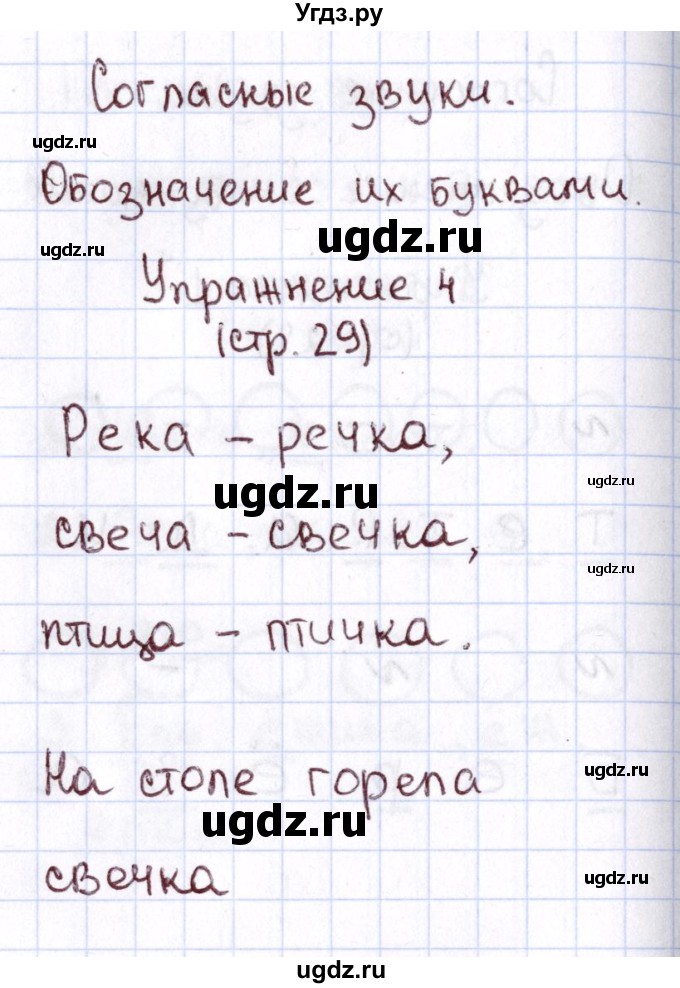 Угдз.ру
Согласные звуки.
ugdz.ru
Обозначение их буквами.
ugdz.ru
ugdz.ru
Упражнение 4
(стр. 29)
Река – речка,
ugdz.ru
ugdz.ru
свеча – свечка,
ugdz.ru
птица – птичка.
На столе горела
ugdz.ru
ugdz.ru
свечка
ugdz.ru
ugdz.ru